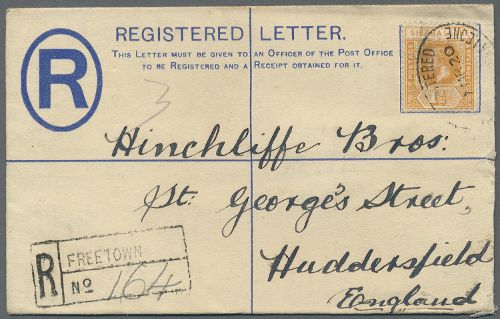 REGISTERED LETTER.
THIS LETTER MUST BE GIVEN TO AN OFFICER OF THE POST OFFICE
TO BE REGISTERED AND A RECEIPT OBTAINED FOR IT.
R
SIERRA
POSTAGE
3
Hinchliffe Bros:
St. George's Street,
Huddersfield
England
R
FREETOWN
No 164